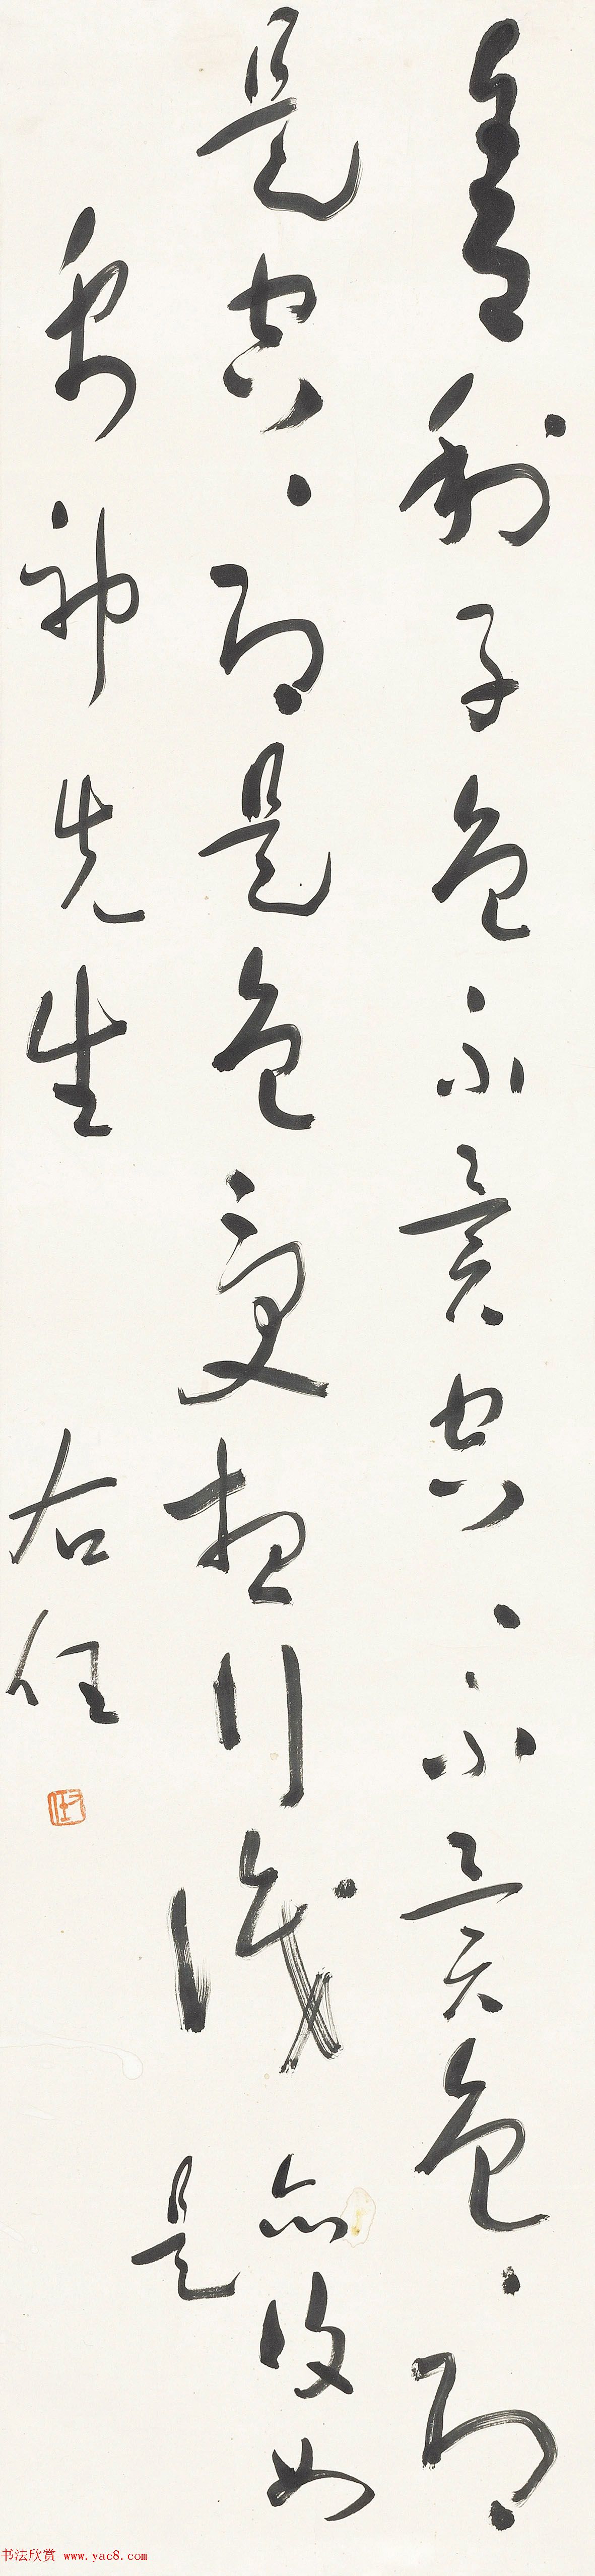 舍利子色不異空、不異色、即
是空、即是色受想行識亦復如是
神先生 右任
书法欣赏 www.yac8.com